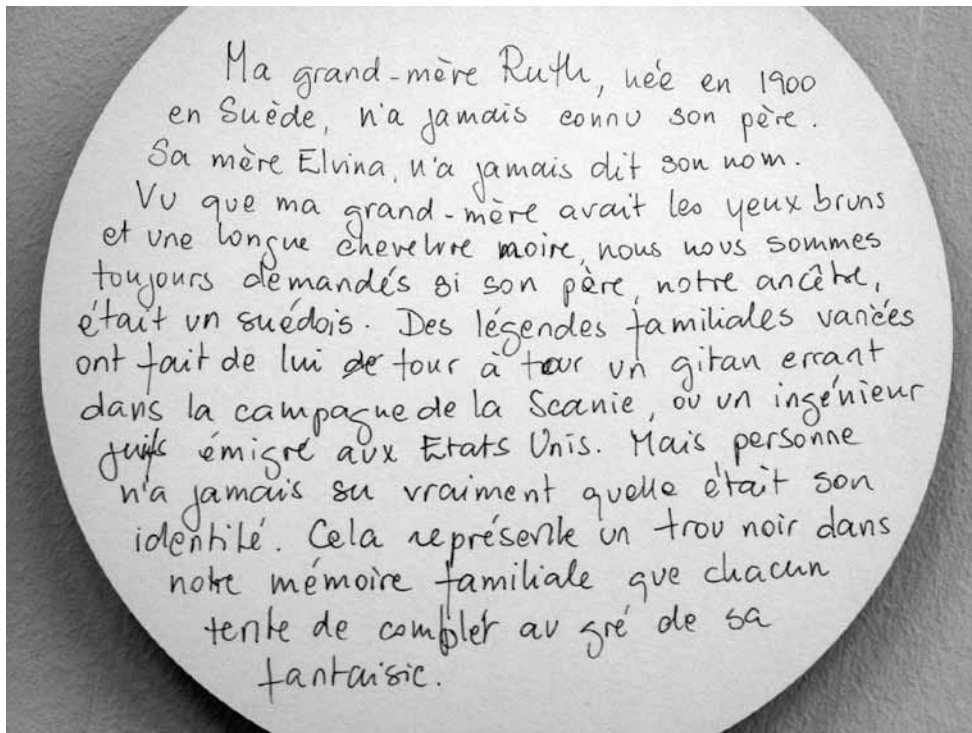 Ma grand-mère Ruth, née en 1900
en Suède, n'a jamais connu son père.
Sa mère Elvina, n'a jamais dit son nom.
Vu que ma grand-mère avait les yeux bruns
et une longue chevelure noire, nous nous sommes
toujours demandés si son père, notre ancêtre,
était un suédois. Des légendes familiales variées
ont fait de lui de tour à tour un gitan errant
dans la campagne de la Scanie, ou un ingénieur
juifs émigré aux Etats Unis. Mais personne
n'a jamais su vraiment quelle était son
identité. Cela représente un trou noir dans
notre mémoire familiale que chacun
tente de combler au gré de sa
fantaisie.